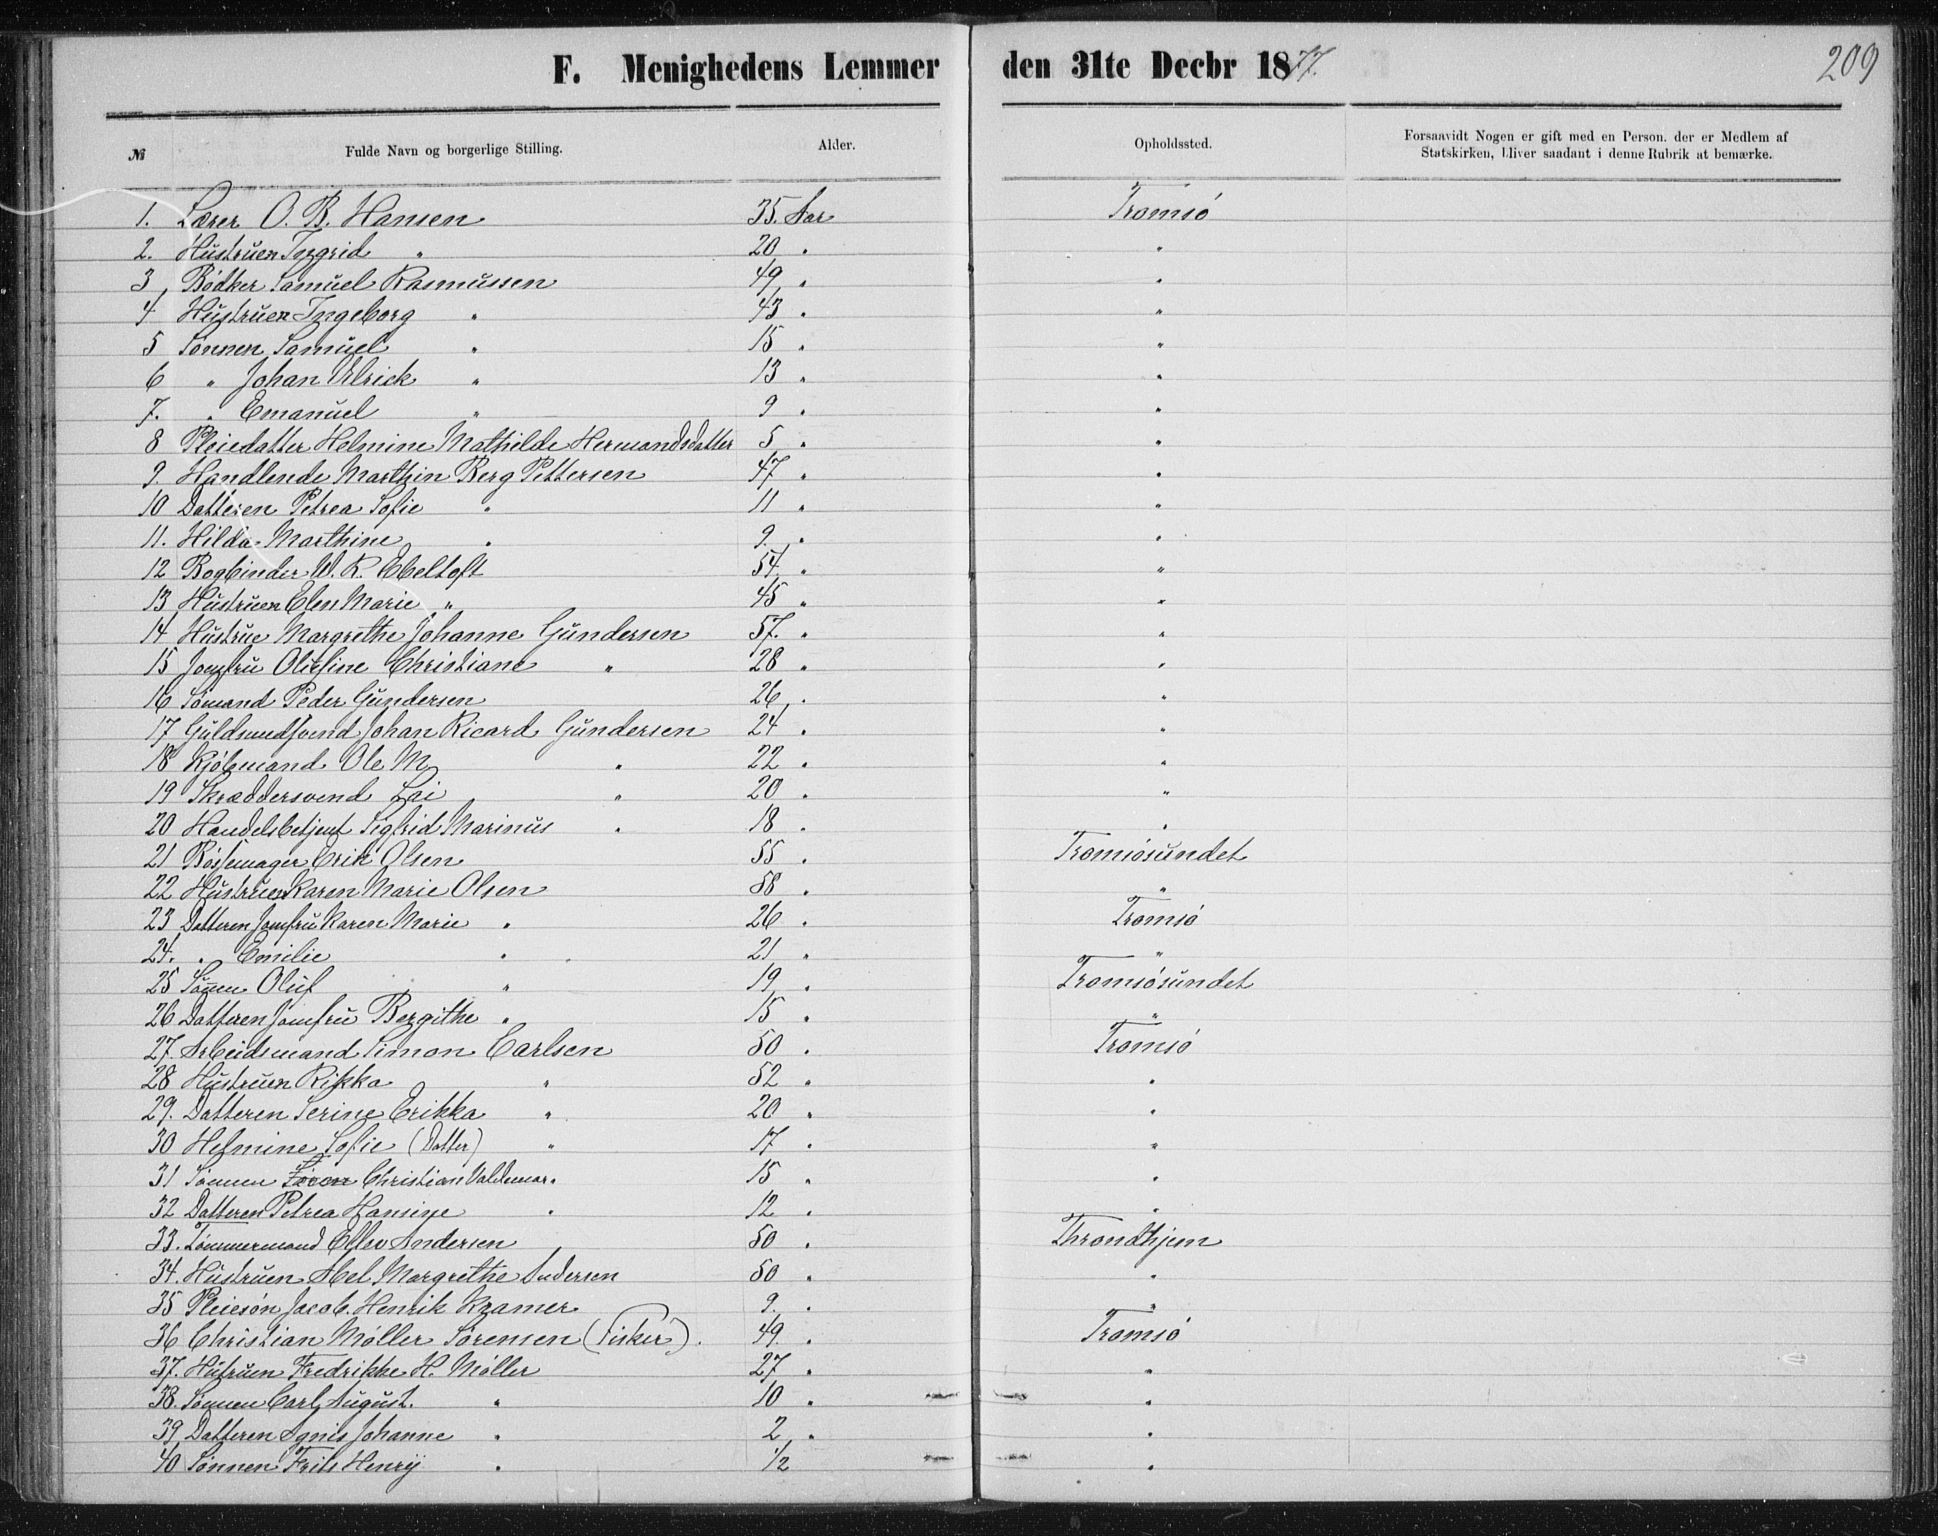 F. Menighedens Lemmer den 31te Decbr 1877. 209
№ Fulde Navn og borgerlige Stilling. Alder. Opholdssted. Forsaavidt Nogen er gift med en Person, der er Medlem af
Statskirken, bliver saadant i denne Rubrik at bemærke.
1. Lærer O. B. Hansen 35. Aar Tromsø
2. Hustruen Ingrid " 20 " "
3, Bødker Samuel Rasmussen 49 " "
4 Hustruen Ingeborg " 43 " "
5 Sønnen Samuel " 15 " "
6 " Johan Ulrick " 13 " "
7. " Emanuel " 9 " "
8 Pleiedatter Helmine Mathilde Hermandsdatter 5 " "
9. Handlende Marthin Berg Pettersen 47 " "
10 Datteren Petrea Sofie " 11 " "
11. Hilda Marthine " 9. " "
12 Bogbinder W. R. Ebeltoft 54. " "
13 Hustruen Elen Marie " 45 " "
14 Hustrue Margrethe Johanne Gundersen 57. " "
15 Jomfru Olufine Christiane " 28 " "
16 Sømand Peder Gundersen 26 " "
17 Guldsmedsvend Johan Ricard Gundersen 24 " "
18 Kjøbmand Ole M " 22 " "
19 Skræddersvend Lai " 20 " "
20 Handelsbetjent Sigfrid Marinus " 18 " "
21 Bøssemager Erik Olsen 55 " Tromsøsundet
22 Hustruen Karen Marie Olsen 58 " "
23 Datteren Jomfru Karen Marie " 26 " Tromsø
24. " Emilie " 21 " "
25 Sønen Oluf " 19 " Tromsøsundet
26 Datteren Jomfru Bergithe " 15 " "
27. Arbeidsmand Simon Carlsen 50 " Tromsø
28 Hustruen Rikka " 52 " "
29. Datteren Serine Erikka " 20 " "
30 Helmine Sofie (Datter) " 17 " "
31 Sønnen Christian Valdemar " 15 " "
32 Datteren Petrea Hansine " 12 " "
33. Tømmermand Ellev Andersen 50 " Throndhjem
34. Hustruen Abel Margrethe Andersen 50 " "
35 Pleiesøn Jacob Henrik Kramer 9. " "
36 Christian Møller Sørensen (Fisker). 49. " Tromsø
37. Hutruen Fredrikke H. Møller 27 " "
38. Sønnen Carl August. " 10 " "
39 Datteren Agnis Johanne " 2 " "
40 Sønnen Frits Henrij " 1/2 "